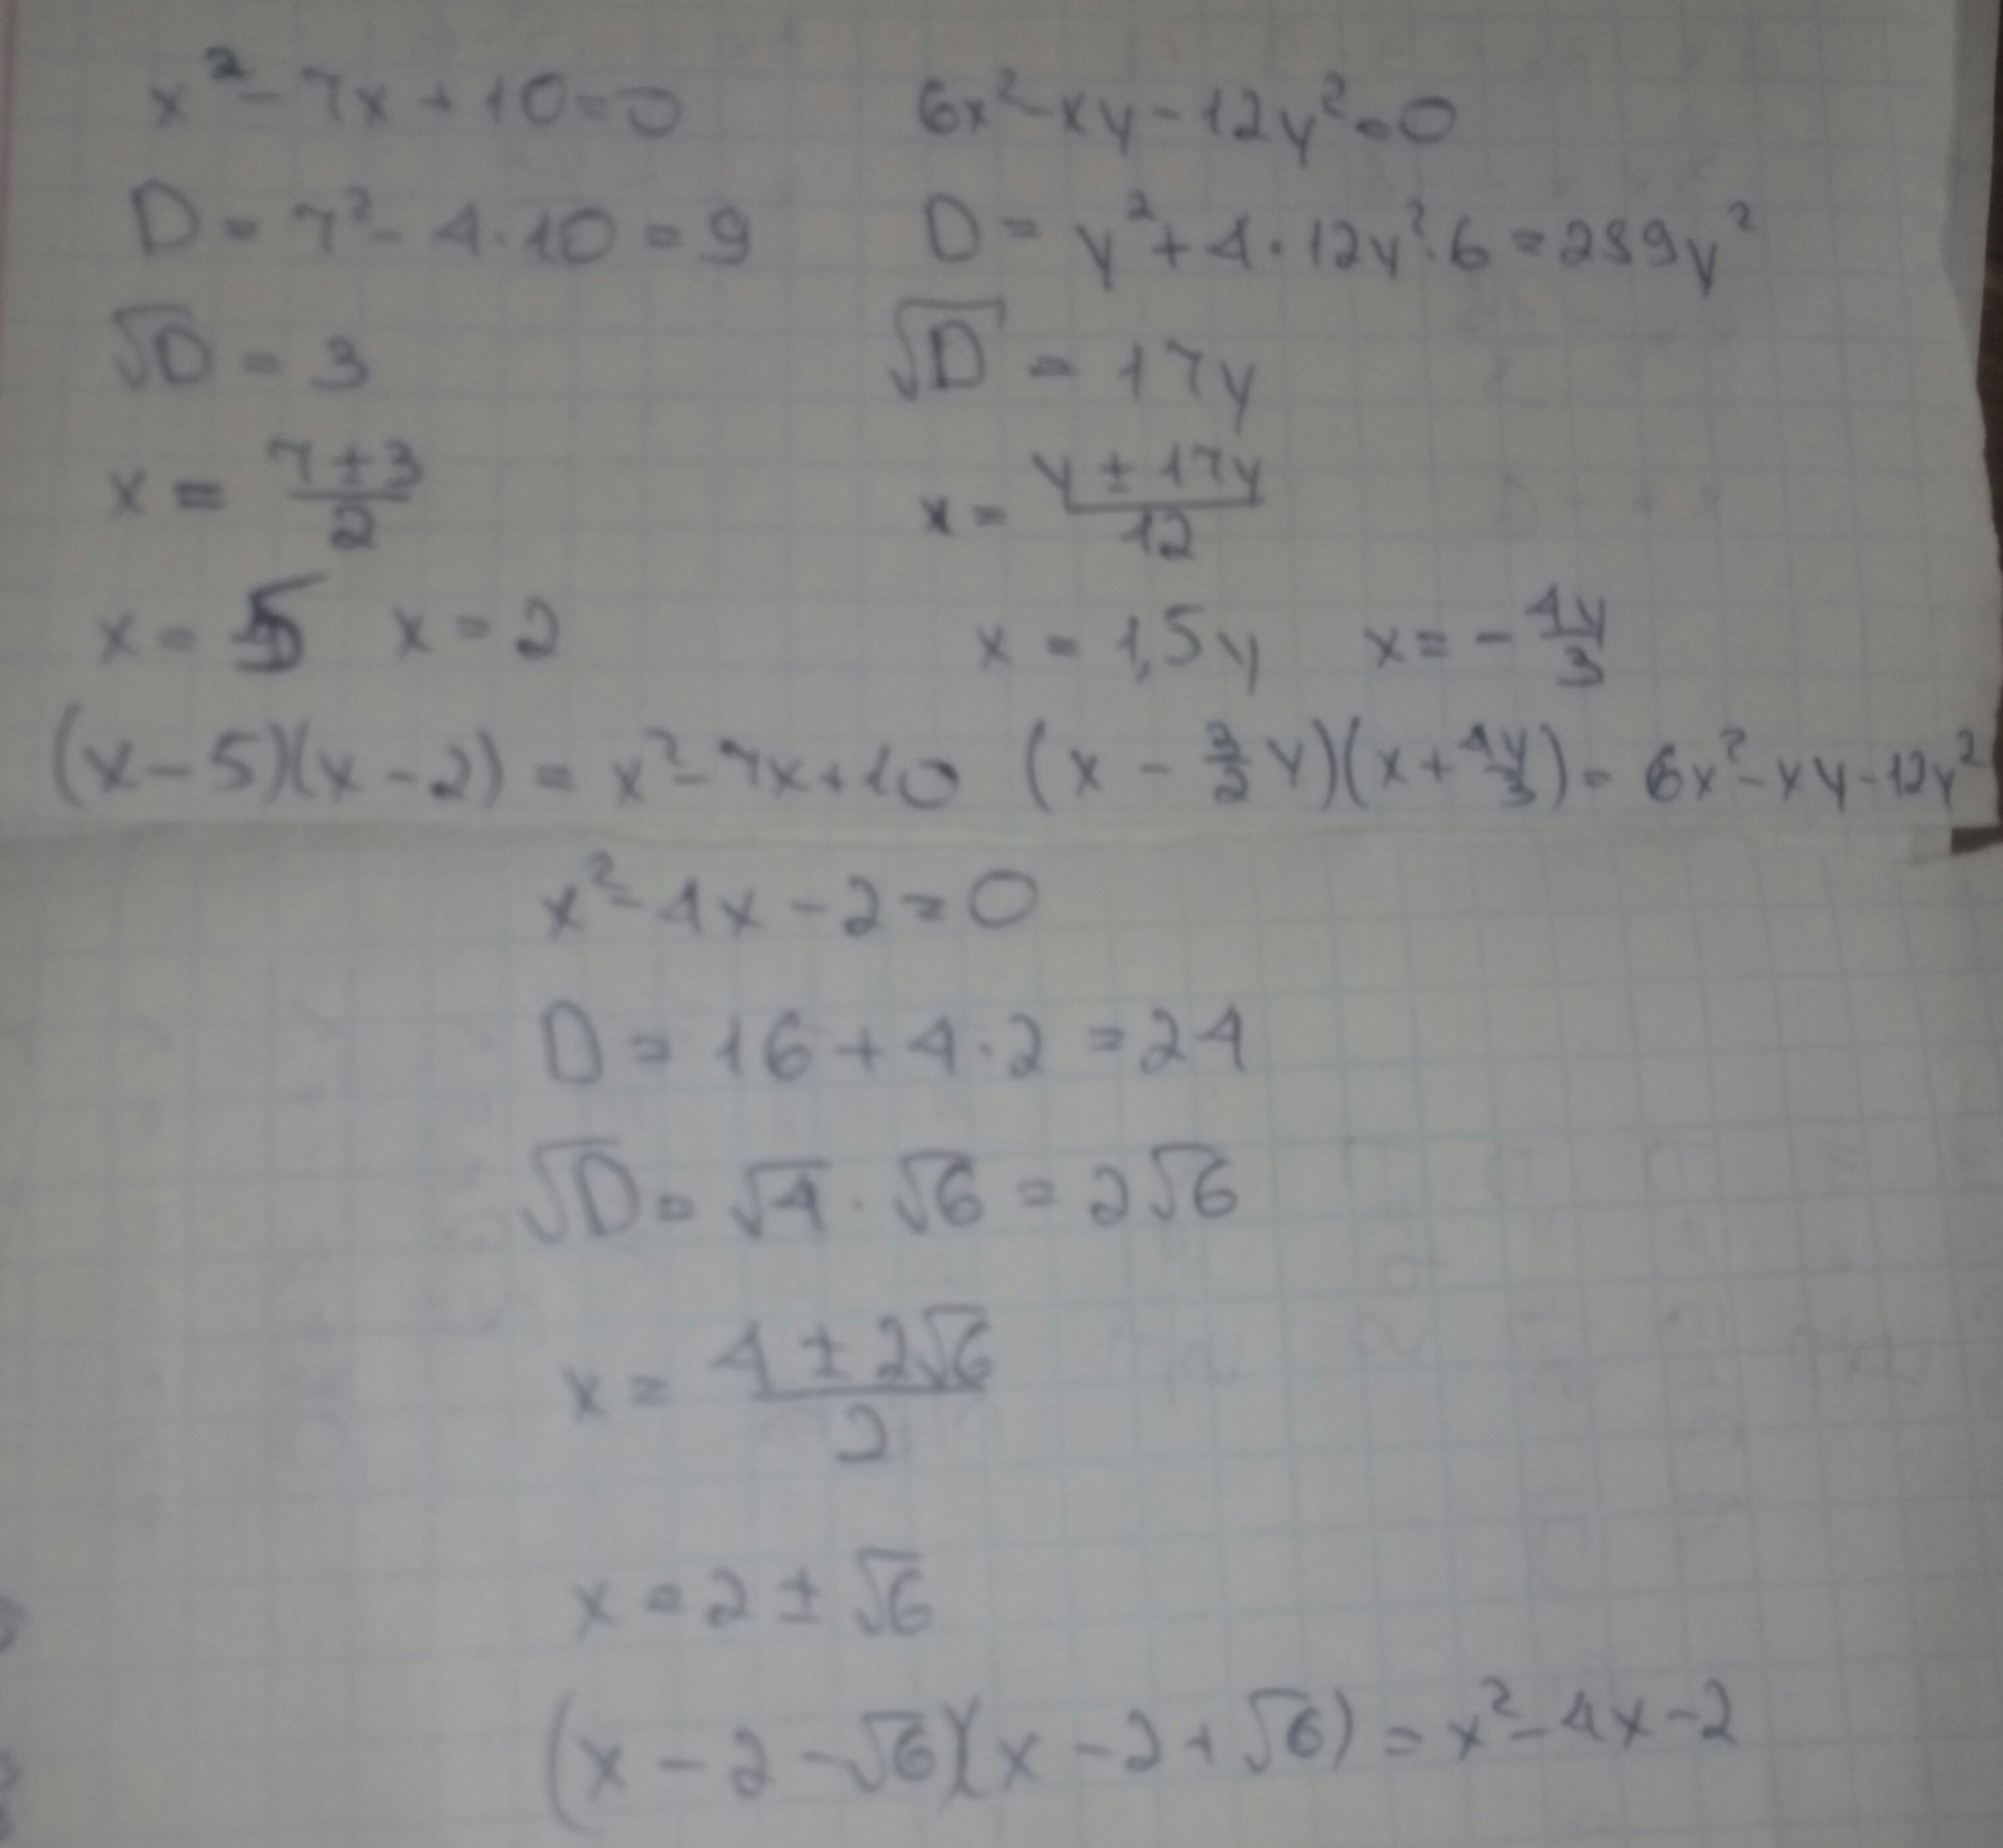 x² - 7x + 10 = 0
D = 7² - 4 · 10 = 9
√D = 3
x = (7 ± 3)/2
x = 5 x = 2
(x - 5)(x - 2) = x² - 7x + 10
6x² - xy - 12y² = 0
D = y² + 4 · 12y² · 6 = 289y²
√D = 17y
x = (y ± 17y)/12
x = 1,5y x = - 4y/3
(x - 3/2 y)(x + 4y/3) = 6x² - xy - 12y²
x² - 4x - 2 = 0
D = 16 + 4 · 2 = 24
√D = √4 · √6 = 2√6
x = (4 ± 2√6)/2
x = 2 ± √6
(x - 2 - √6)(x - 2 + √6) = x² - 4x - 2